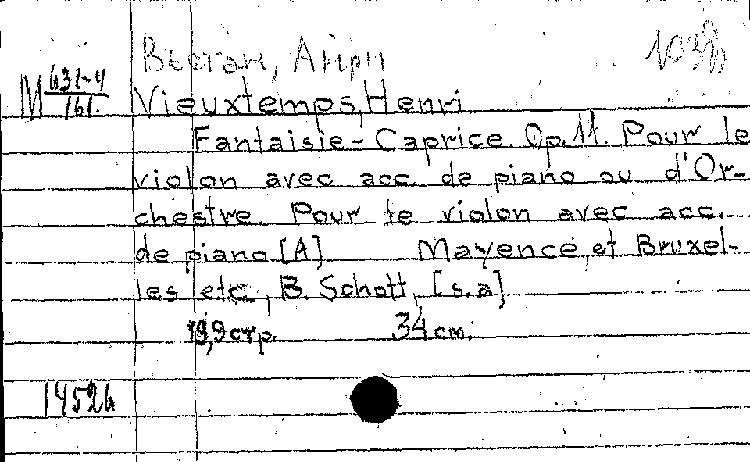 Вьетан, Анри
M 631-4
161
Vieuxtemps, Henri
Fantaisie-Caprice. Op. 11. Pour le
violon avec acc. de piano ou d'Or-
chestre. Pour le violon avec acc.
de piano [A] Mayence et Bruxel-
les etc., B. Schott, [s.a]
стр. 34 cm.